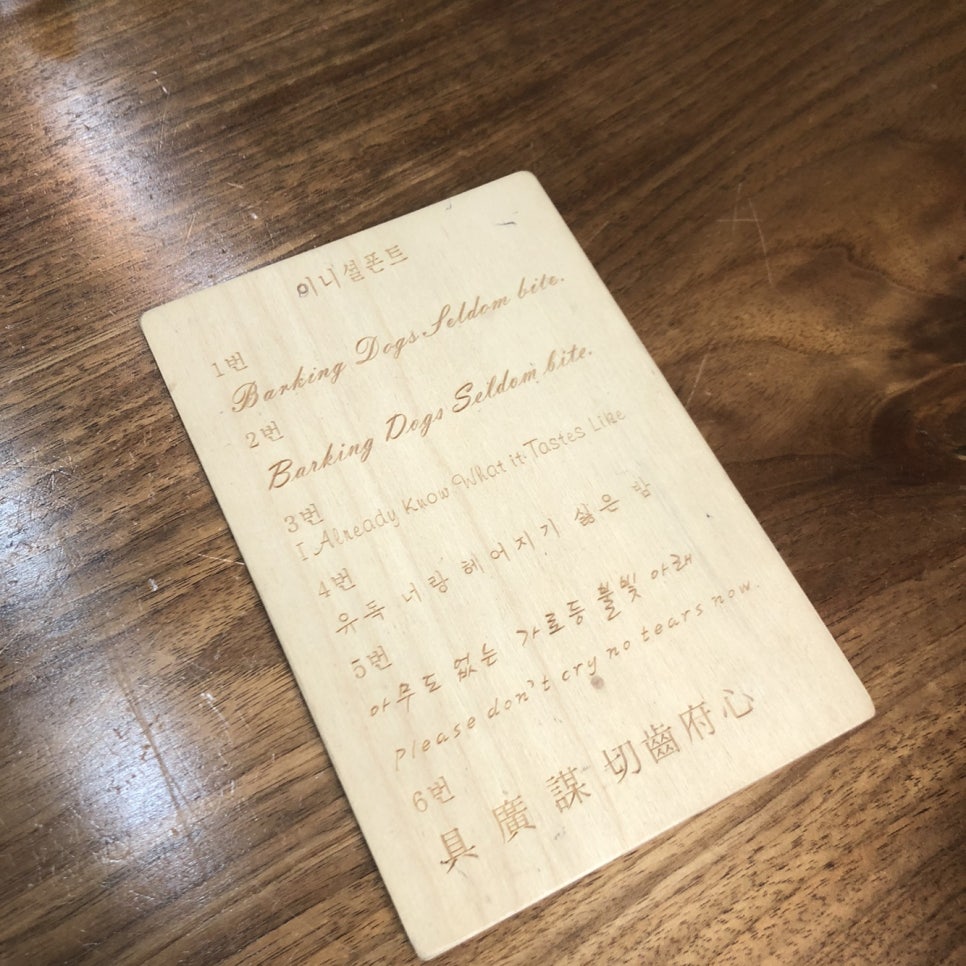 이니셜폰트
1번
Barking Dogs Seldom bite.
2번
Barking Dogs Seldom bite.
3번
I Already Know What it Tastes Like
4번
유독 너랑 헤어지기 싫은 밤
5번
아무도 없는 가로등 불빛 아래
Please don't cry no tears now.
6번
具 廣 謀 切齒府心